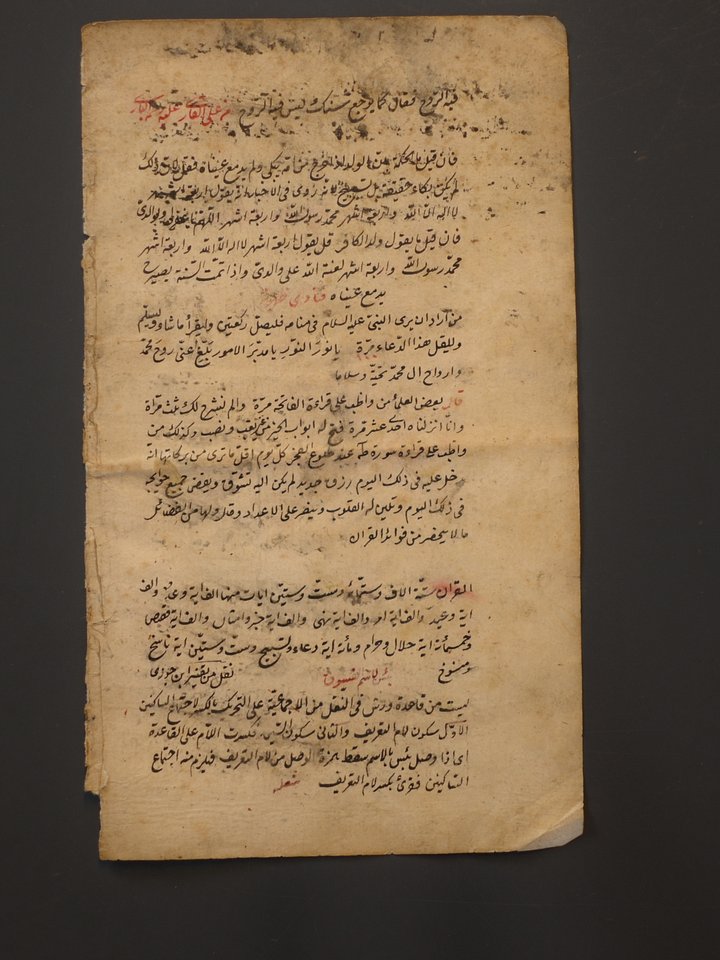 فيه الروح فقال كما يرجع سنك وليس فيه الروح م على القارى عليه
فان قيل ما الحكمة من ان الولد اذا خرج من امه يبكى ولم يدمع عيناه فقل لان ذلك
لم يكن بكاء حقيقة بل لانه روى فى الاخبار انه يقول اربعة اشهر
لا اله الا الله واربعة اشهر محمد رسول الله واربعة اشهر اللهم اغفر لى ولوالدى
فان قيل ما يقول ولد الكافر قل يقول اربعة اشهر لا اله الا الله واربعة اشهر
محمد رسول الله واربعة اشهر لعنة الله على والدى واذا تمت السنة يصير
يدمع عيناه فتاوى
من اراد ان يرى النبى عليه السلام فى منامه فليصل ركعتين وليقرأ ما شاء وليسلم
وليقل هذا الدعاء مرة يا نور النور يا مدبر الامور بلغ عنى روح محمد
وارواح ال محمد تحية وسلاما
قال بعض العلماء من واظب على قراءة الفاتحة مرة والم نشرح لك ثلث مراة
وانا انزلناه احدى عشر مرة فتح له ابواب الخير من غير تعب ونصب وكذلك من
واظب على قراءة سورة طه عند طلوع الفجر كل يوم اقل ما ترى من بركاتها انه
دخل عليه فى ذلك اليوم رزق جديد لم يكن اليه تشوق ويقضى جميع حوايجه
فى ذلك اليوم وتلين له القلوب وينصر على الاعداء وقارؤها من الفضائل
ما لا يحصر من فوائد القران
القران ستة الاف وستمائة وست وستين ايات منها الف اية وعد والف
اية وعيد والف اية امر والف اية نهى والف اية خبر وامثال والف اية قصص
وخمسمائة اية حلال وحرام ومائة اية دعاء وتسبيح وست وستين اية ناسخ
ومنسوخ نقل من تفسير ابن جوزى
بئس الاسم الفسوق
ليست من قاعدة ورش فى النقل من الاجماعية على التحريك بالكسر لاجتماع الساكنين
الاول سكون لام التعريف والثانى سكون السين فكسرت اللام على القاعدة
اى اذا وصل بئس بالاسم سقط همزة الوصل من لام التعريف فيلزم منه اجتماع
الساكنين فقرئ بكسر لام التعريف